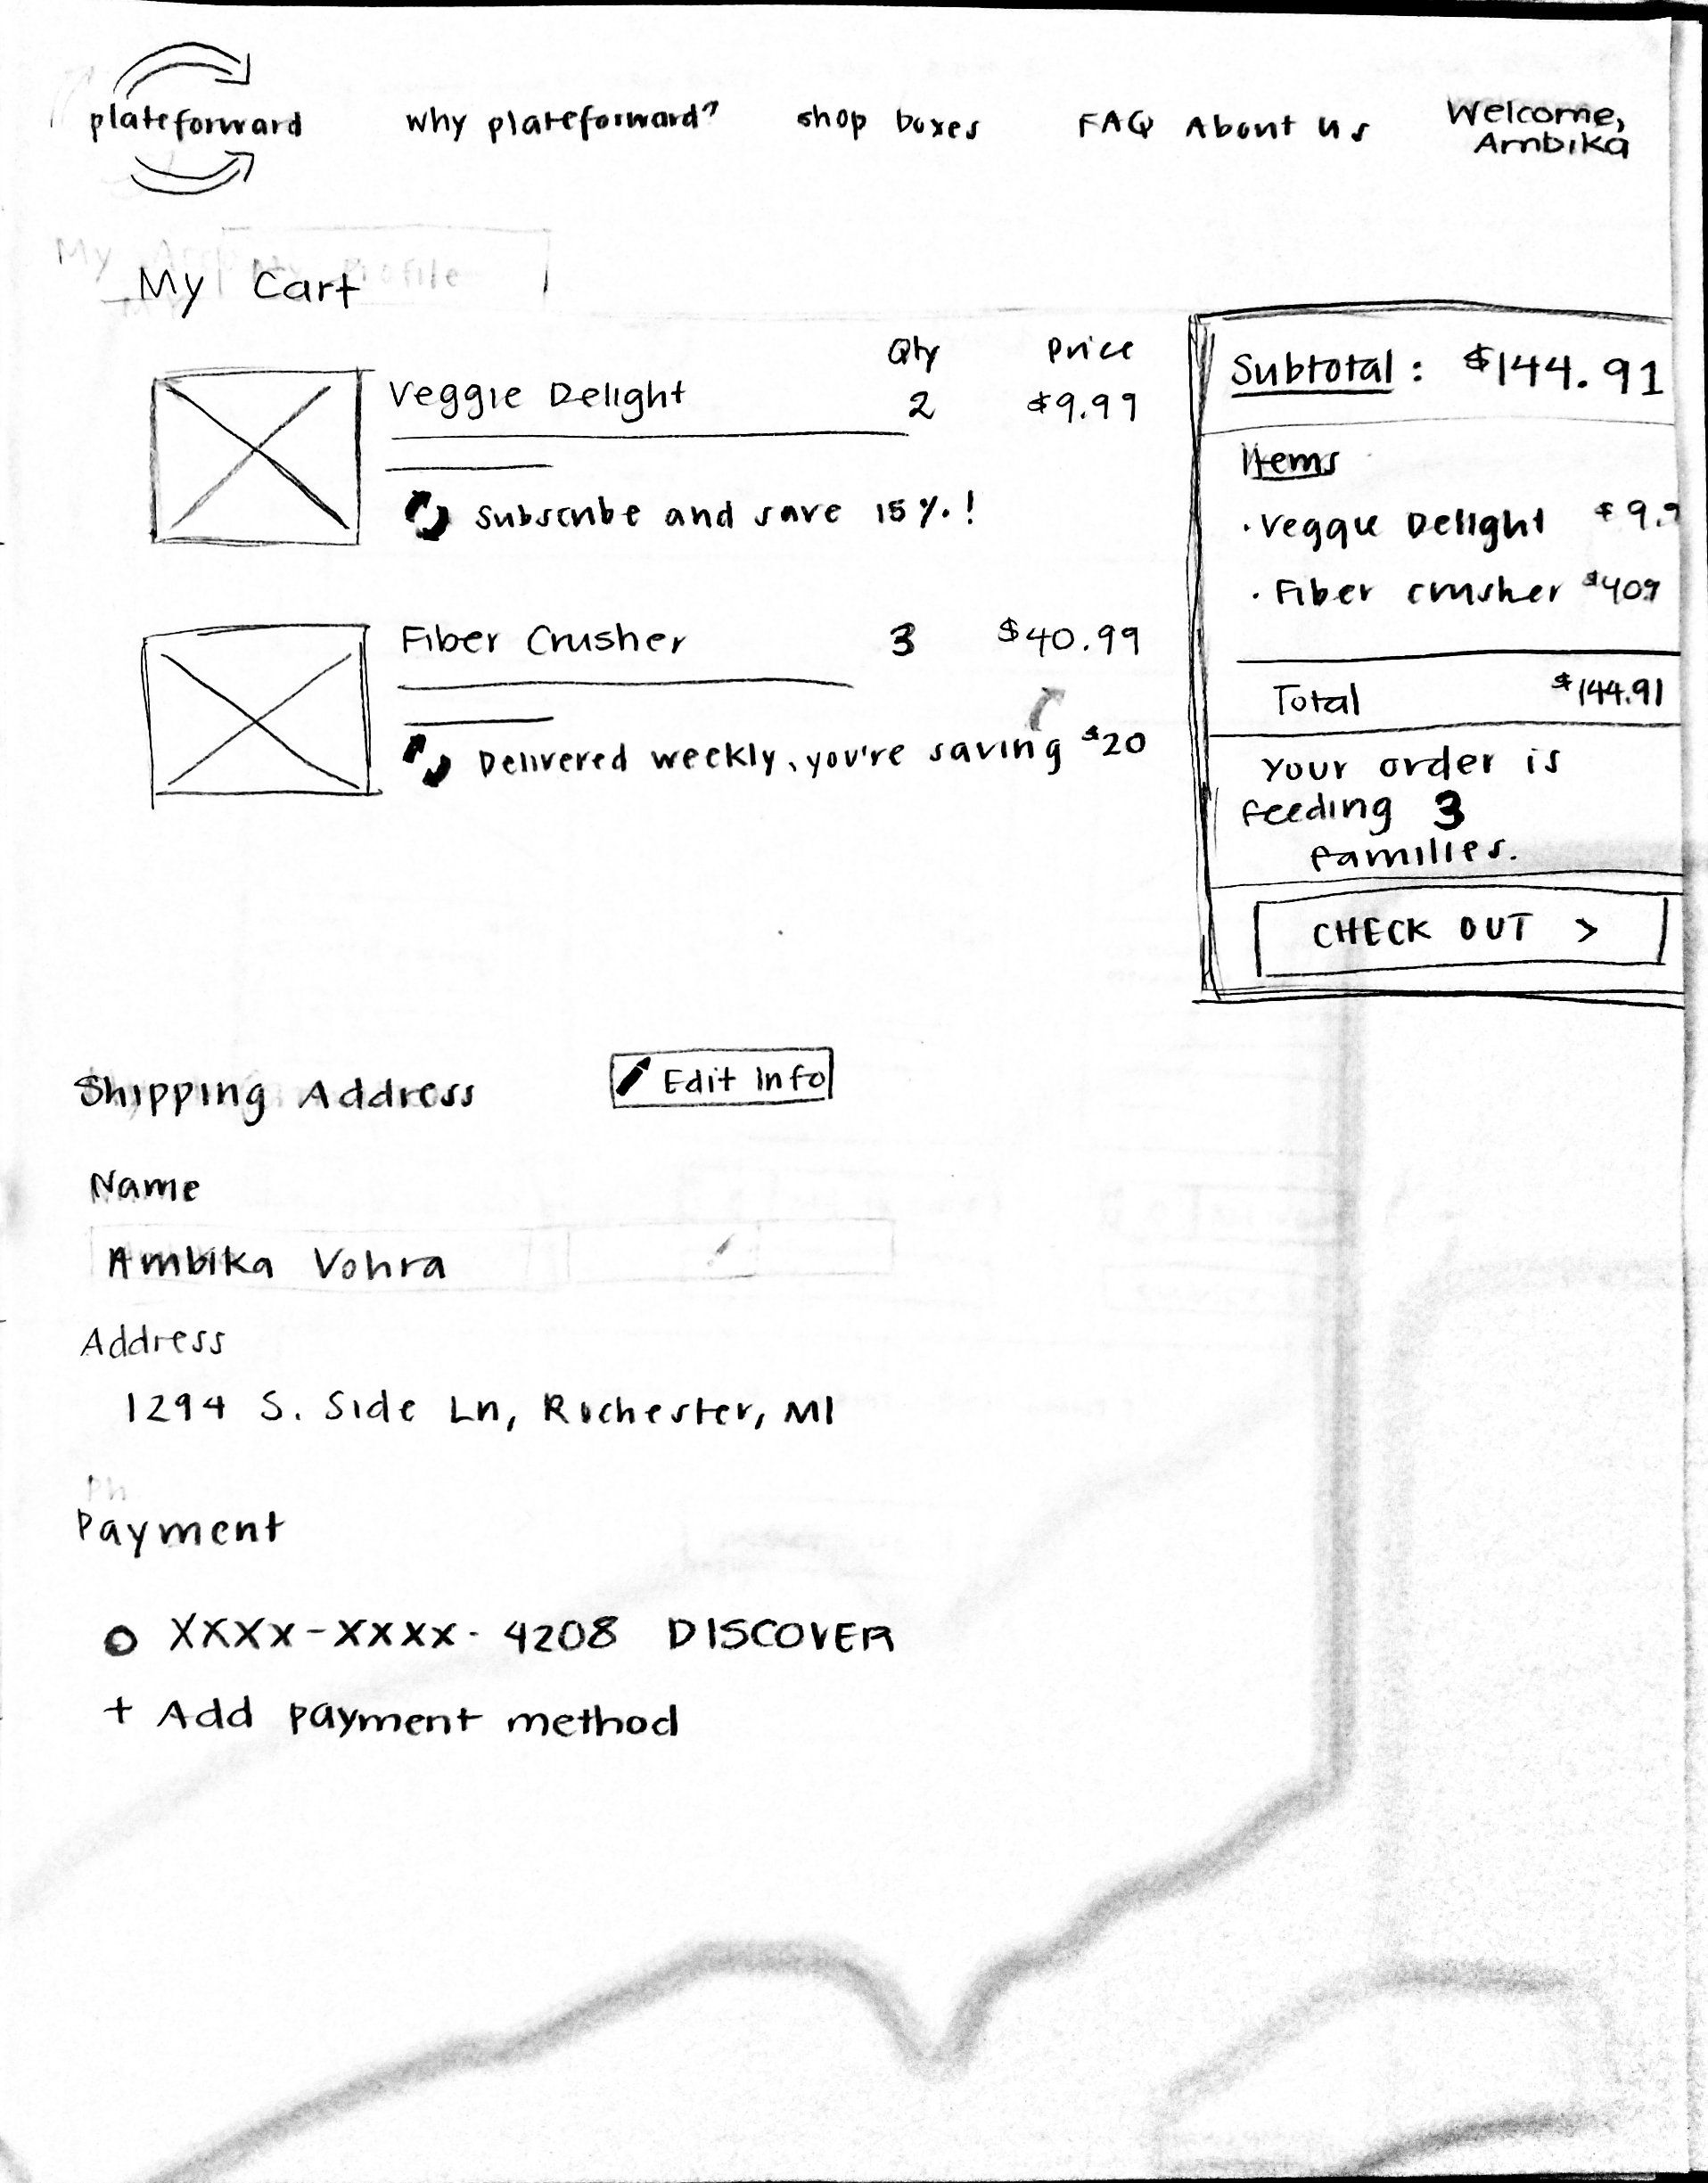 plateforward
why plateforward?
shop boxes
FAQ
About Us
Welcome,
Ambika
My Cart
Qty Price
Veggie Delight 2 $9.99
Subscribe and save 15%!
Fiber Crusher 3 $40.99
Delivered weekly, you're saving $20
Subtotal: $144.91
Items
· Veggie Delight $9.9
· Fiber crusher $409
Total $144.91
Your order is
feeding 3
families.
CHECK OUT >
Shipping Address
Edit Info
Name
Ambika Vohra
Address
1294 S. Side Ln, Rochester, MI
Payment
XXXX-XXXX- 4208 DISCOVER
+ Add payment method